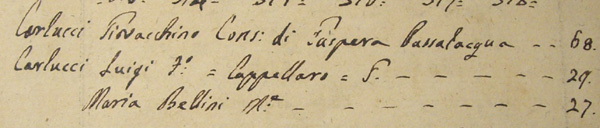 Carlucci Gioacchino Cons: di Prospera Passalacqua - - 68.
Carlucci Luigi F.o = Cappellaro = F. - - - - - - 29.
Maria Bellini M.e - - - - - - - 27.